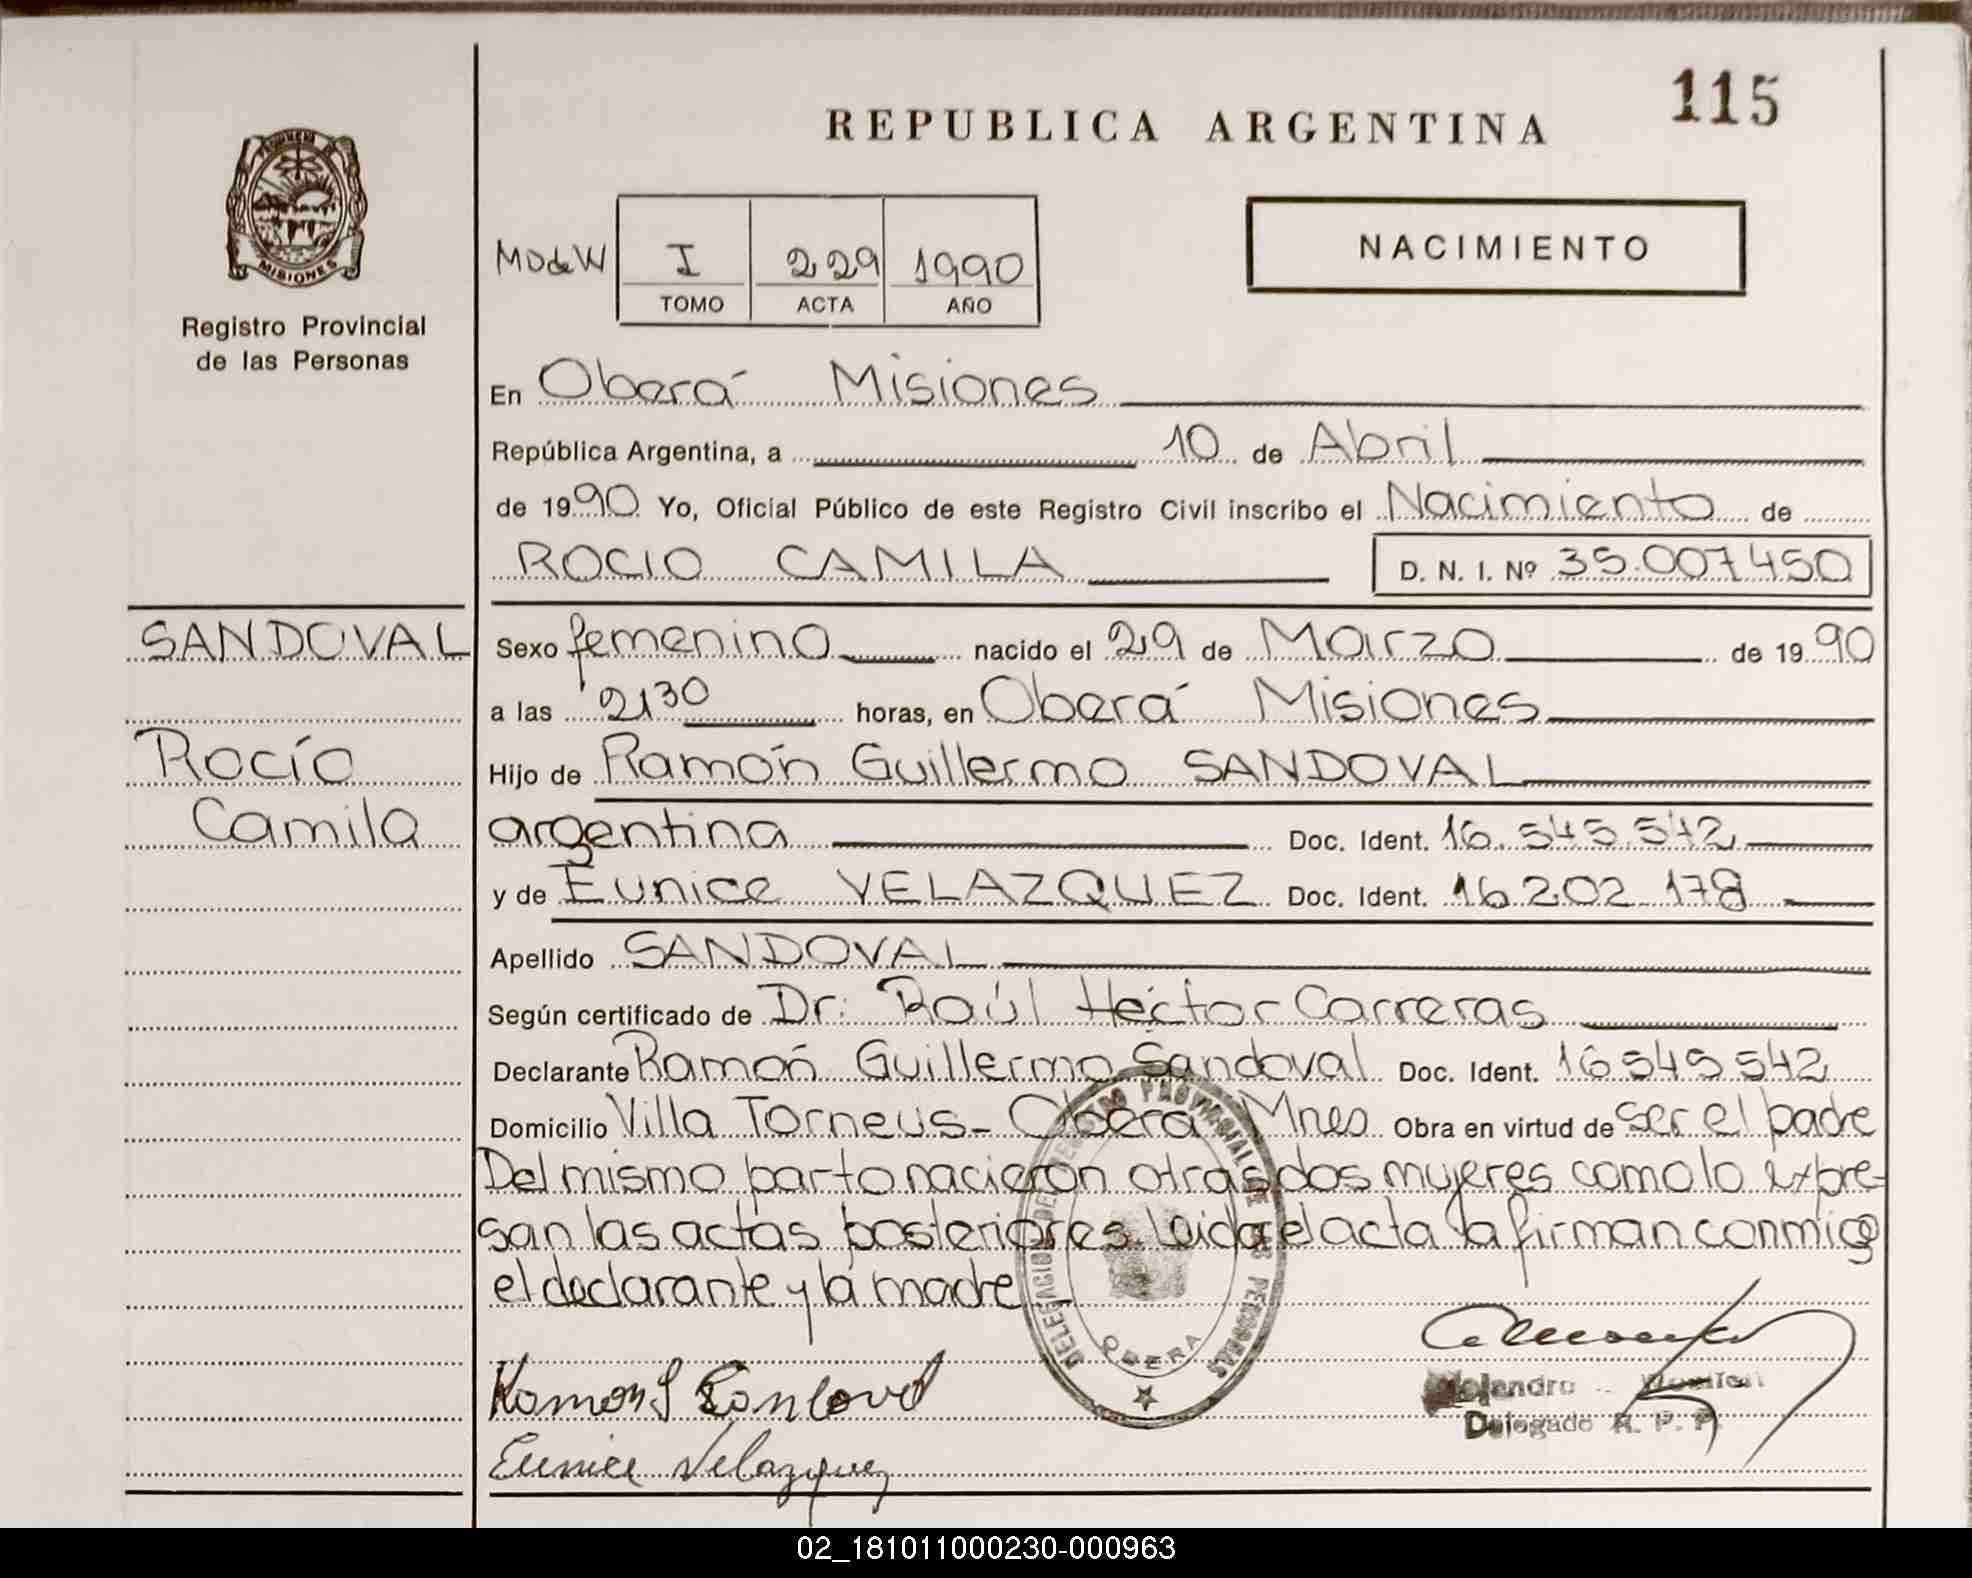 115
REPUBLICA ARGENTINA
MISIONES
Registro Provincial
de las Personas
MDdeW I 229 1990
TOMO ACTA AÑO
NACIMIENTO
En Oberá Misiones
República Argentina, a 10 de Abril
de 1990 Yo, Oficial Público de este Registro Civil inscribo el Nacimiento de
ROCIO CAMILA D. N. I. Nº 35.007450
SANDOVAL
Rocío
Camila
Sexo femenino nacido el 29 de Marzo de 1990
a las 21³⁰ horas, en Oberá Misiones
Hijo de Ramón Guillermo SANDOVAL
argentina Doc. Ident. 16.545.542
y de Eunice VELAZQUEZ Doc. Ident. 16.202.178
Apellido SANDOVAL
Según certificado de Dr: Raúl Héctor Carreras
Declarante Ramón Guillermo Sandoval Doc. Ident. 16545542
Domicilio Villa Torneus- Oberá Mnes Obra en virtud de ser el padre
Del mismo parto nacieron otras dos mujeres como lo expre-
san las actas posteriores. Leida el acta la firman conmigo
el declarante y la madre
DELEGACION DEL REGISTRO PROVINCIAL DE LAS PERSONAS
OBERA
Ramon G Sandoval
Eunice Velazquez
Alejandro
Delegado R. P. P.
02_181011000230-000963